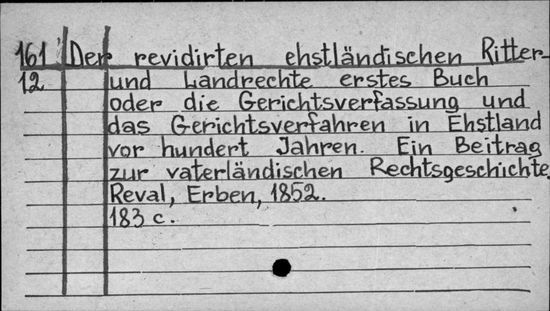 161 Der revidirten ehstländischen Ritter-
12 und Landrechte erstes Buch
oder die Gerichtsverfassung und
das Gerichtsverfahren in Ehstland
vor hundert Jahren. Ein Beitrag
zur vaterländischen Rechtsgeschichte.
Reval, Erben, 1852.
183 c.